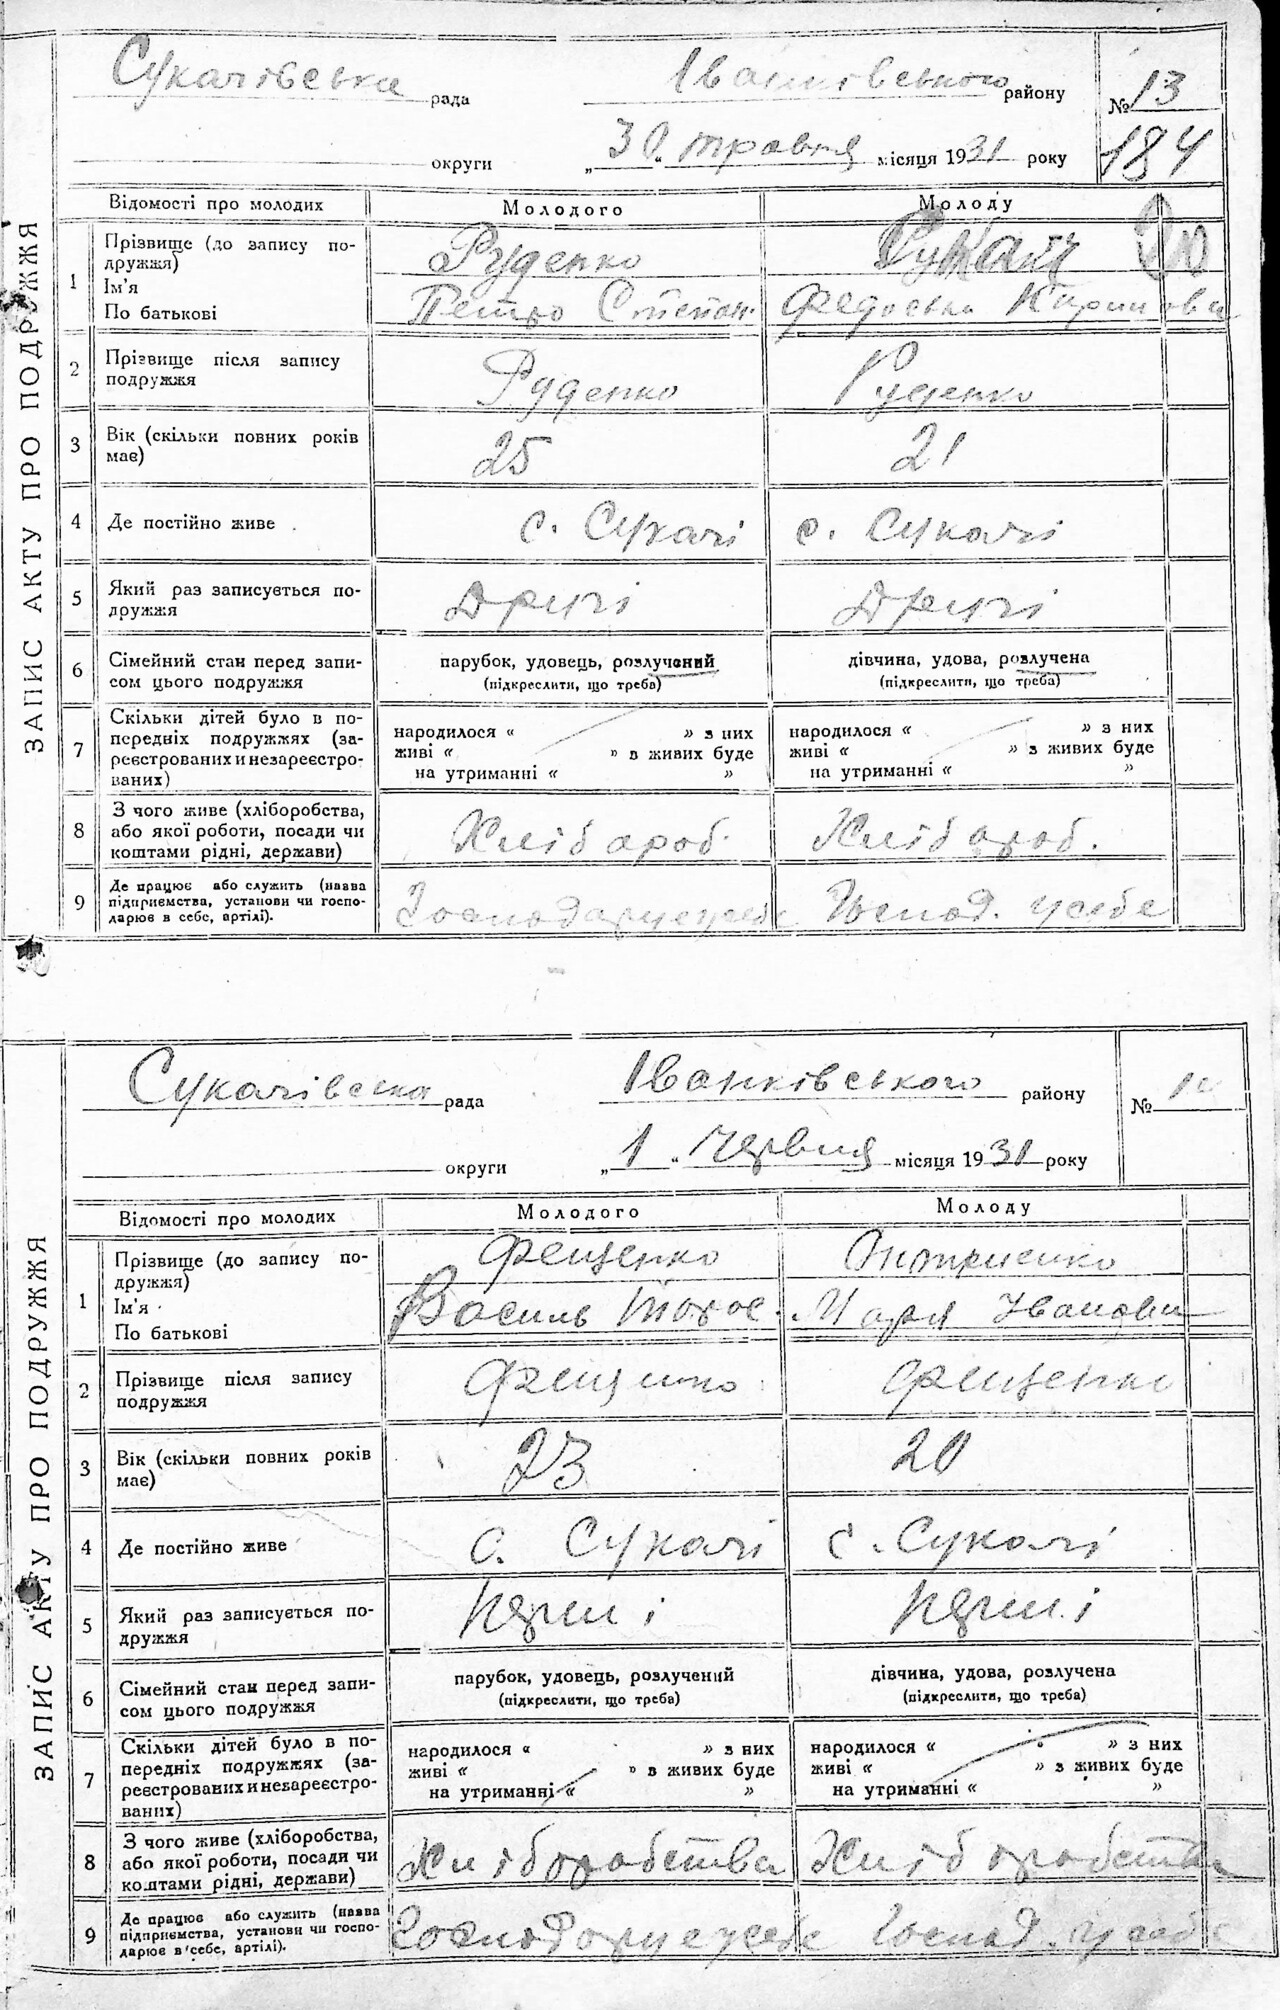 ЗАПИС АКТУ ПРО ПОДРУЖЖЯ
Сукачівська рада Іванківського району №13
округи „30“ травня місяця 1931 року 184
Відомості про молодих Молодого Молоду
1 Прізвище (до запису подружжя) Руденко
Ім'я
По батькові Петро Степан. Федоська
2 Прізвище після запису
подружжя Руденко Руденко
3 Вік (скільки повних років
має) 25 21
4 Де постійно живе с. Сукачі с. Сукачі
5 Який раз записується по-
дружжя Другі Другі
6 Сімейний стан перед запи- парубок, удовець, розлучений дівчина, удова, розлучена
сом цього подружжя (підкреслити, що треба) (підкреслити, що треба)
7 Скільки дітей було в по-
передніх подружжях (за- народилося « » з них народилося « » з них
реєстрованих и незареєстро- живі « » в живих буде живі « » з живих буде
ваних) на утриманні « » на утриманні « »
8 З чого живе (хліборобства,
або якої роботи, посади чи Хлібороб. Хлібороб.
коштами рідні, держави)
9 Де працює або служить (назва
підприємства, установи чи госпо- Господарує у себе Господ. у себе
дарює в себе, артілі).
ЗАПИС АКТУ ПРО ПОДРУЖЖЯ
Сукачівська рада Іванківського району №
округи „1“ червня місяця 1931 року
Відомості про молодих Молодого Молоду
1 Прізвище (до запису по- Фещенко
дружжя)
Ім'я Василь Марія Іванови
По батькові
2 Прізвище після запису
подружжя Фещенко Фещенко
3 Вік (скільки повних років
має) 23 20
4 Де постійно живе с. Сукачі с. Сукачі
5 Який раз записується по-
дружжя Перші Перші
6 Сімейний стан перед запи- парубок, удовець, розлучений дівчина, удова, розлучена
сом цього подружжя (підкреслити, що треба) (підкреслити, що треба)
7 Скільки дітей було в по-
передніх подружжях (за- народилося « » з них народилося « » з них
реєстрованих и незареєстро- живі « » в живих буде живі « » з живих буде
ваних) на утриманні « » на утриманні « »
8 З чого живе (хліборобства,
або якої роботи, посади чи Хліборобства Хліборобства
коштами рідні, держави)
9 Де працює або служить (назва
підприємства, установи чи госпо- Господарує у себе Господ. у себе
дарює в себе, артілі).